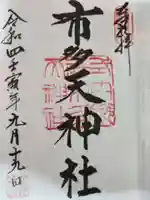 奉拝
布多天神社
令和四壬寅年九月十九日